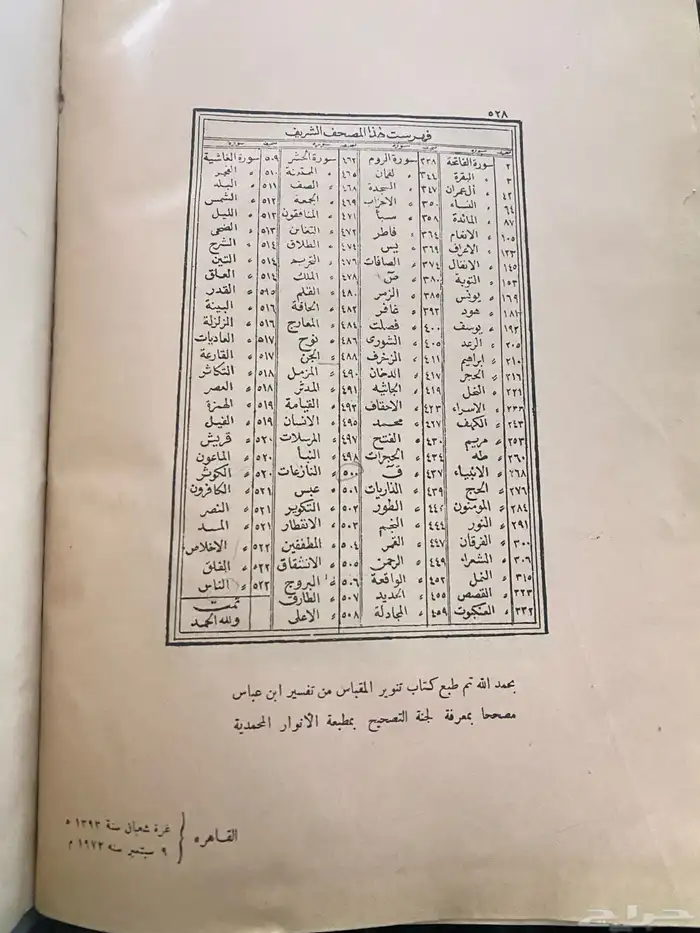 ٥٢٨
فهرست هذا المصحف الشريف
صحيفه سورة صحيفه سورة صحيفه سورة صحيفه سورة
٢ سورة الفاتحة ٣٣٨ سورة الروم ٤٦٢ سورة الحشر ٥٠٩ سورة الغاشية
٣ » البقرة ٣٤٤ » لقمان ٤٦٥ » الممتحنة ٥١٠ » الفجر
٤٢ » آل عمران ٣٤٧ » السجدة ٤٦٨ » الصف ٥١١ » البلد
٦٤ » النساء ٣٥٠ » الاحزاب ٤٦٩ » الجمعة ٥١٢ » الشمس
٨٧ » المائدة ٣٥٨ » سبأ ٤٧١ » المنافقون ٥١٣ » الليل
١٠٥ » الانعام ٣٦٤ » فاطر ٤٧٢ » التغابن ٥١٣ » الضحى
١٢٣ » الاعراف ٣٦٩ » يس ٤٧٤ » الطلاق ٥١٤ » الشرح
١٤٥ » الانفال ٣٧٤ » الصافات ٤٧٦ » التحريم ٥١٤ » التين
١٥٣ » التوبة ٣٨٠ » ص ٤٧٨ » الملك ٥١٤ » العلق
١٦٩ » يونس ٣٨٥ » الزمر ٤٨٠ » القلم ٥١٥ » القدر
١٨١ » هود ٣٩٣ » غافر ٤٨٢ » الحاقة ٥١٦ » البينة
١٩٢ » يوسف ٤٠٠ » فصلت ٤٨٤ » المعارج ٥١٦ » الزلزلة
٢٠٥ » الرعد ٤٠٥ » الشورى ٤٨٦ » نوح ٥١٧ » العاديات
٢١٠ » ابراهيم ٤١١ » الزخرف ٤٨٨ » الجن ٥١٧ » القارعة
٢١٦ » الحجر ٤١٧ » الدخان ٤٩٠ » المزمل ٥١٨ » التكاثر
٢٢١ » النحل ٤١٩ » الجاثيه ٤٩١ » المدثر ٥١٨ » العصر
٢٣٣ » الاسراء ٤٢٣ » الاحقاف ٤٩٣ » القيامة ٥١٩ » الهمزة
٢٤٣ » الكهف ٤٢٧ » محمد ٤٩٥ » الانسان ٥١٩ » الفيل
٢٥٣ » مريم ٤٣٠ » الفتح ٤٩٧ » المرسلات ٥٢٠ » قريش
٢٦٠ » طه ٤٣٤ » الحجرات ٤٩٨ » النبأ ٥٢٠ » الماعون
٢٦٨ » الانبياء ٤٣٧ » ق ٥٠٠ » النازعات ٥٢٠ » الكوثر
٢٧٦ » الحج ٤٣٩ » الذاريات ٥٠١ » عبس ٥٢١ » الكافرون
٢٨٤ » المؤمنون » الطور ٥٠٢ » التكوير ٥٢١ » النصر
٢٩١ » النور ٤٤٤ » النجم ٥٠٣ » الانفطار ٥٢١ » المسد
٣٠٠ » الفرقان ٤٤٧ » القمر ٥٠٤ » المطففين ٥٢٢ » الاخلاص
٣٠٦ » الشعراء ٤٤٩ » الرحمن ٥٠٥ » الانشقاق ٥٢٢ » الفلق
٣١٥ » النمل ٤٥٢ » الواقعة ٥٠٦ » البروج ٥٢٢ » الناس
٣٢٣ » القصص ٤٥٥ » الحديد ٥٠٧ » الطارق تمت
٣٣٢ » العنكبوت ٤٥٩ » المجادلة ٥٠٨ » الاعلى ولله الحمد
بحمد الله تم طبع كتاب تنوير المقباس من تفسير ابن عباس
مصححا بمعرفة لجنة التصحيح بمطبعة الأنوار المحمدية
القاهره { غرة شعبان سنة ١٣٩٣ ه
٩ سبتمبر سنه ١٩٧٣ م
حراج